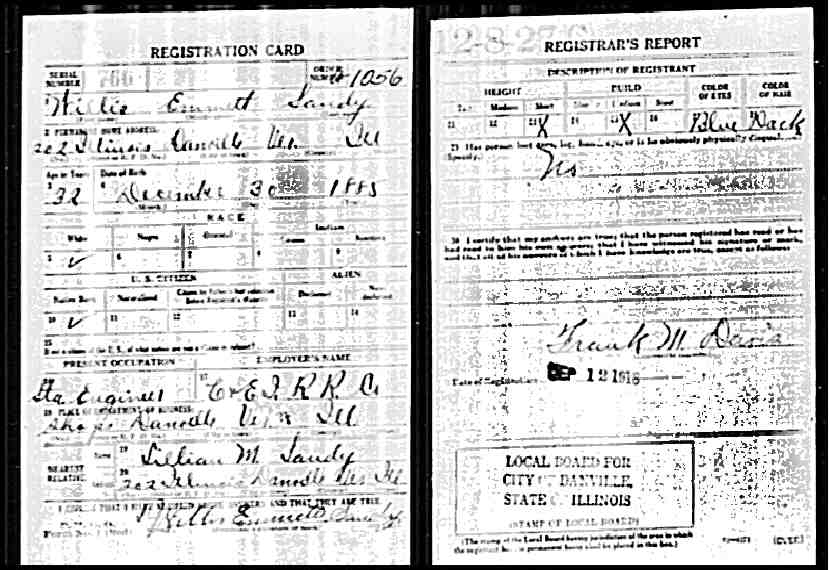 REGISTRATION CARD
SERIAL NUMBER 766 ORDER NUMBER 1056
Willis Emmett Sandy
PERMANENT HOME ADDRESS:
202 Illinois Danville Ver. Ill
Age in Years Date of Birth
32 December 30 1885
RACE
White Negro Oriental Indian
5 ✓ 6 7 8 9
U. S. CITIZEN ALIEN
Native Born Naturalized
10 ✓ 11 12 13 14
15
PRESENT OCCUPATION EMPLOYER'S NAME
Sta Engineer C & E I R R Co
PLACE OF EMPLOYMENT OR BUSINESS:
Shops Danville Ver. Ill
NEAREST RELATIVE Name Lillian M. Sandy
202 Illinois Danville Ver Ill
I AFFIRM THAT I HAVE VERIFIED ABOVE ANSWERS AND THAT THEY ARE TRUE
Willis Emmett Sandy
12-8-27 C
REGISTRAR'S REPORT
DESCRIPTION OF REGISTRANT
HEIGHT BUILD COLOR OF EYES COLOR OF HAIR
Tall Medium Short Slender Medium Stout
21 22 23 X 24 25 X 26 Blue Dark
29 Has person lost arm, leg, hand, eye, or is he obviously physically disqualified?
Specify.
No
30 I certify that my answers are true; that the person registered has read or has
had read to him his own answers; that I have witnessed his signature or mark,
and that all of his answers of which I have knowledge are true, except as follows:
Frank M. Davis
Date of Registration SEP 12 1918
LOCAL BOARD FOR
CITY OF DANVILLE,
STATE OF ILLINOIS
(STAMP OF LOCAL BOARD)
(The stamp of the Local Board having jurisdiction of the area in which
the registrant has his permanent home shall be placed in this box.)
(OVER)